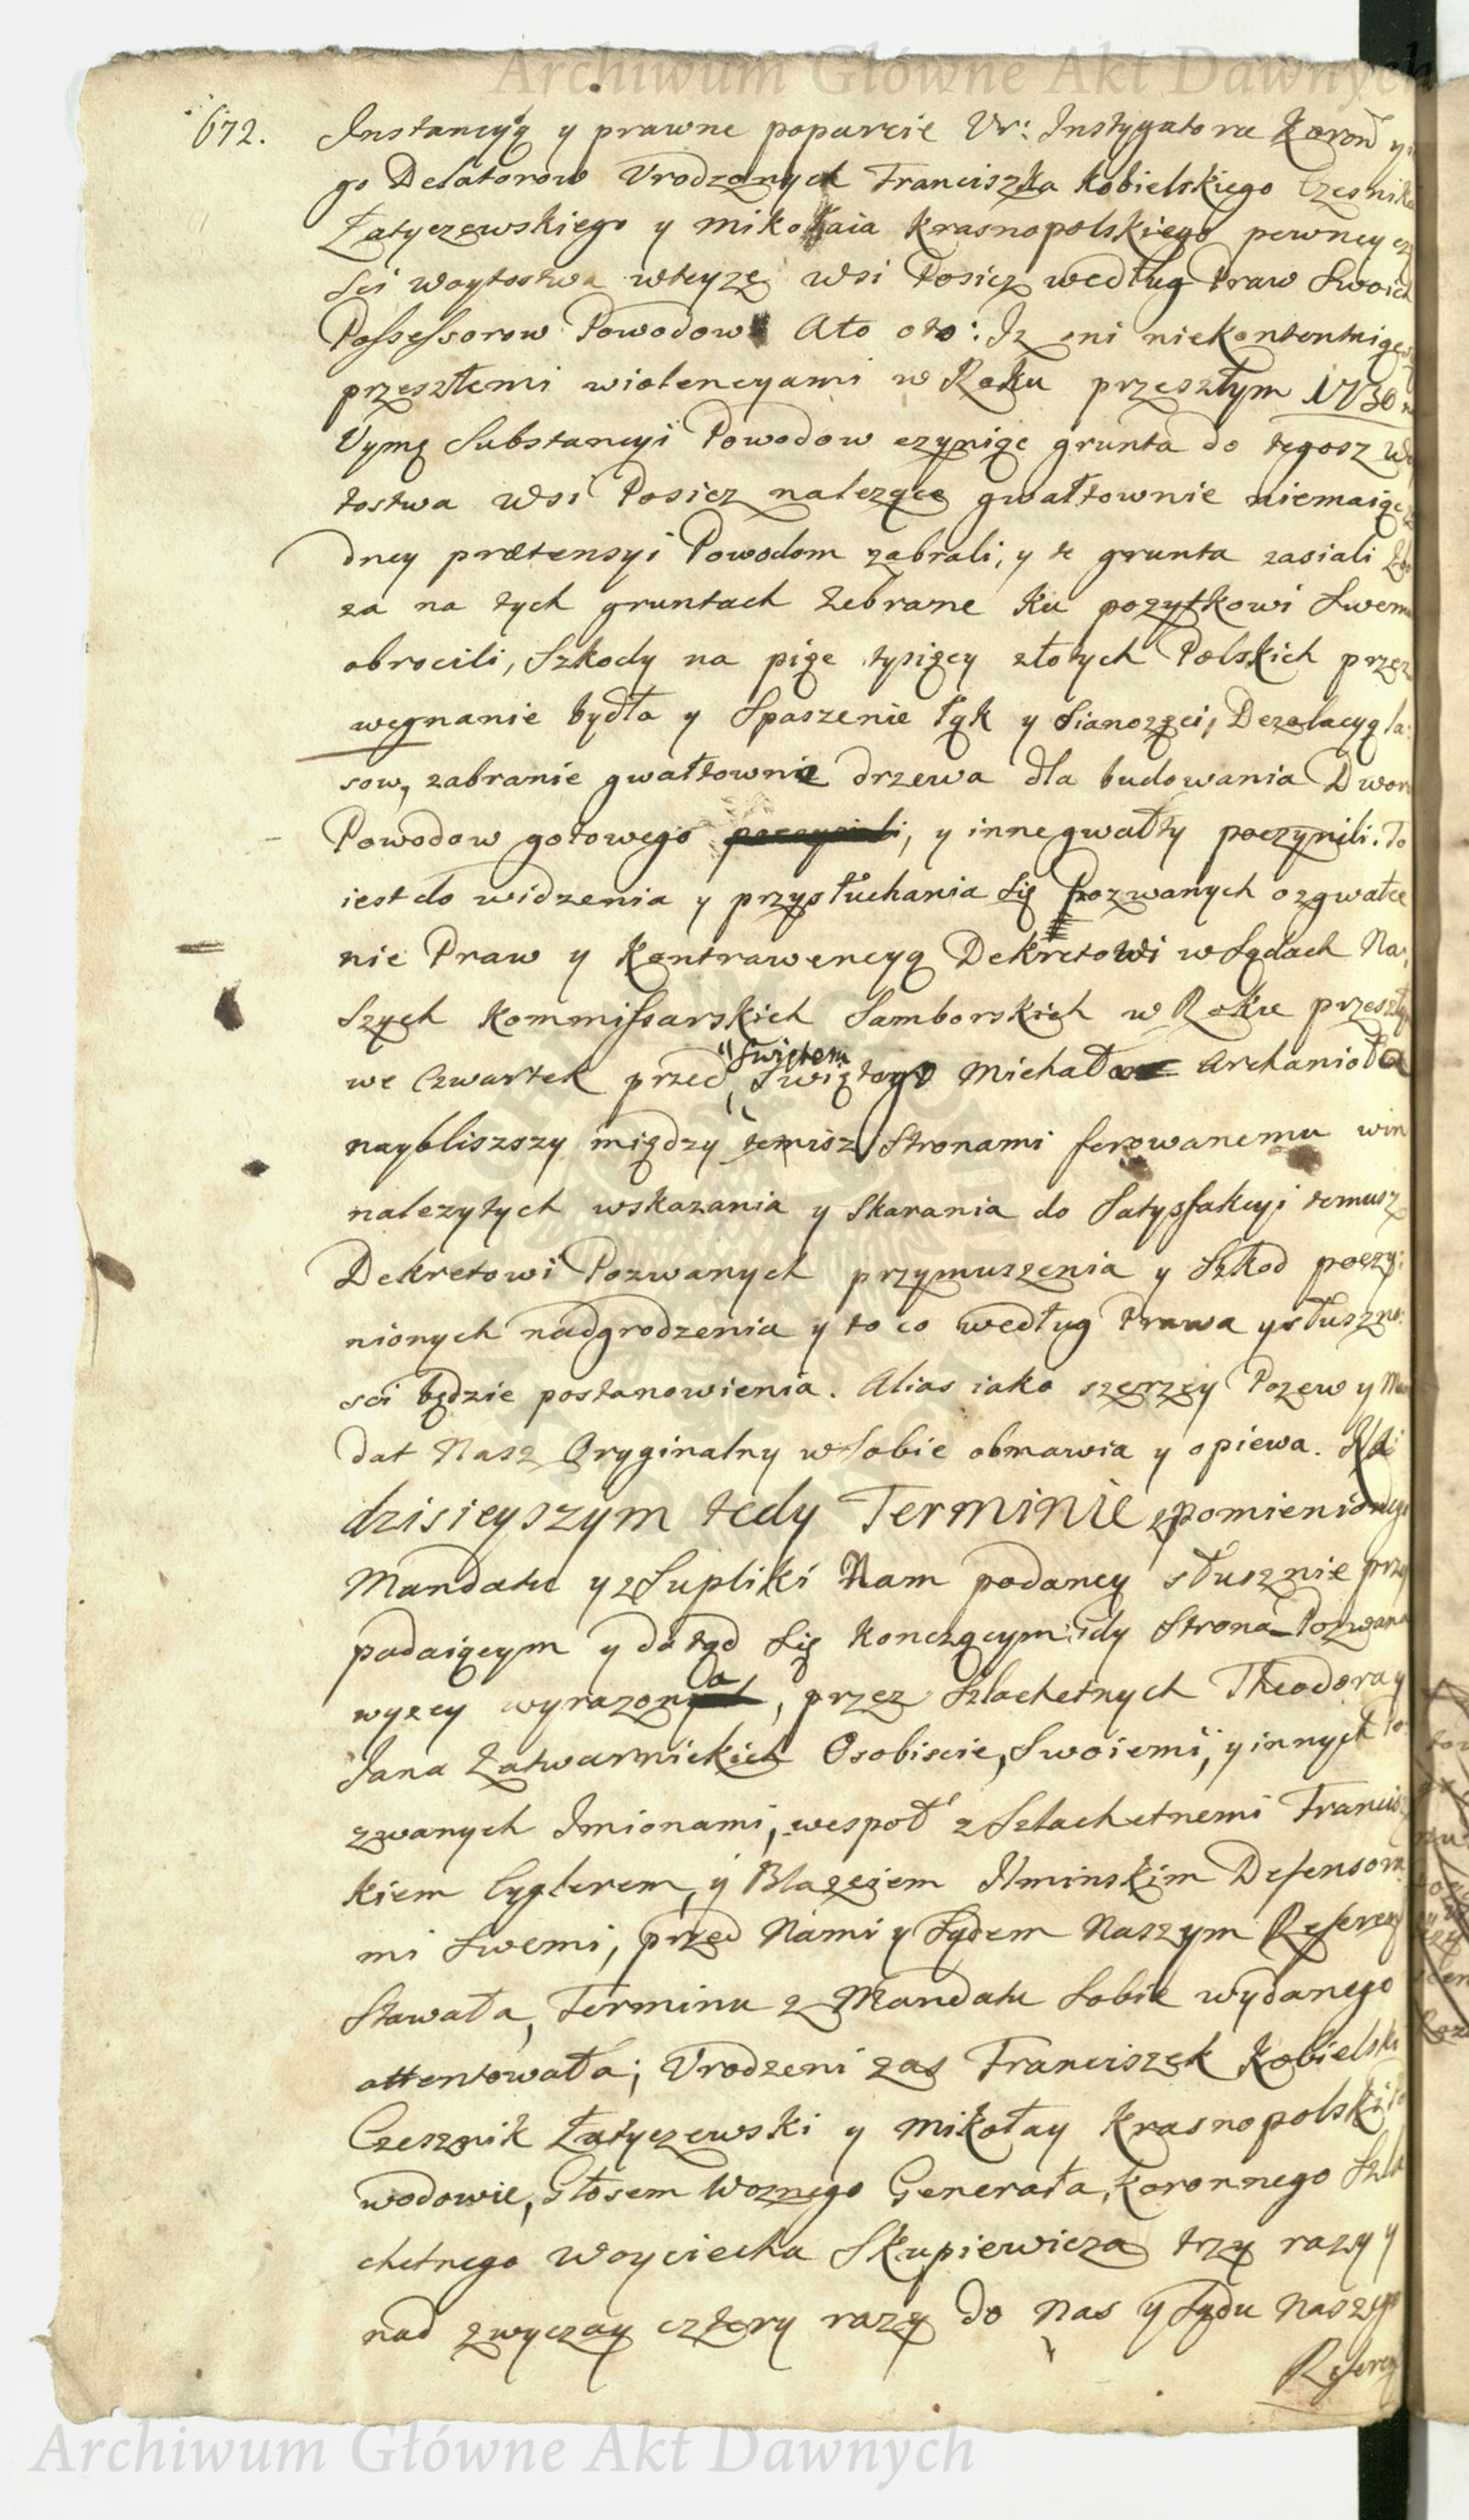 Archiwum Główne Akt Dawnych
672.
Instancyią y prawne poparcie Ur: Instygatora Koron y
go Delatorow Urodzonych Franciszka Kobielskiego Czesnika
Łatyczewskiego y Mikołaia Krasnopolskiego pewney
sci woytostwa wteyze wsi Posicz według Praw Swoich
Possessorow Powodow Ato oto: Iz oni niekontentuiąc
przeszłemi wiolencyami w Roku przeszłym 1730
Uymę Substancyi Powodow czyniąc grunta do tegosz
tostwa wsi Posicz nalezące gwałtownie niemaiąc
dney prætensyi Powodom zabrali, y te grunta zasiali
za na tych gruntach zebrane ku pozytkowi Swemu
obrocili, Szkody na pięc tysięcy złotych Polskich przez
wegnanie bydła y Spaszenie łąk y Sianozęci, Dezolacyą la:
sow, zabranie gwałtownie drzewa dla budowania Dworu
Powodow gotowego, y inne gwałty poczynili. To
iest do widzenia y przysłuchania się Pozwanych o zgwałce
nie Praw y Kontrawencyą Dekretowi w Sądach Na,
szych Kommissarskich Samborskich w Roku
Swiętem
we Czwartek przed Swiętego Michała Archanioła
naybliszszy między temisz Stronami ferowanemu win
nalezytych wskazania y Skarania do Satysfakcyi temusz
Dekretowi Pozwanych przymuszenia y Szkod poczy:
nionych nadgrodzenia y to co według Prawa y słuszno:
sci będzie postanowienia. Alias iako szerzey Pozew y Man
dat Nasz Oryginalny w Sobie obmawia y opiewa. Na
dzisieyszym tedy Terminie zpomienionego
Mandatu y z Supliki Nam podaney słusznie przy
padaiącym y dotąd się konczącym idy Strona Pozwana
wyzey wyrazona, przez Szlachetnych Theodora y
Jana Łatwarnickich Osobiscie, Swoiemi, y innych Po
zwanych Imionami, wespoł z Szlachetnemi Francisz
kiem Cyglerem, y Błazeiem Ilminskim Defensora
mi Swemi, przed Nami y Sądem Naszym Referen
Stawała, Terminu z Mandatu Sobie wydanego
attentowała; Urodzeni zas Franciszek Kobielski
Czesznik Łatyczewski y Mikołay Krasnopolski Po
wodowie, Głosem Woznego Generała Koronnego Szla
chetnego Woyciecha Skupiewicza trzy razy y
nad zwyczay cztery razy do Nas y Sądu Naszego
Referen
Archiwum Główne Akt Dawnych